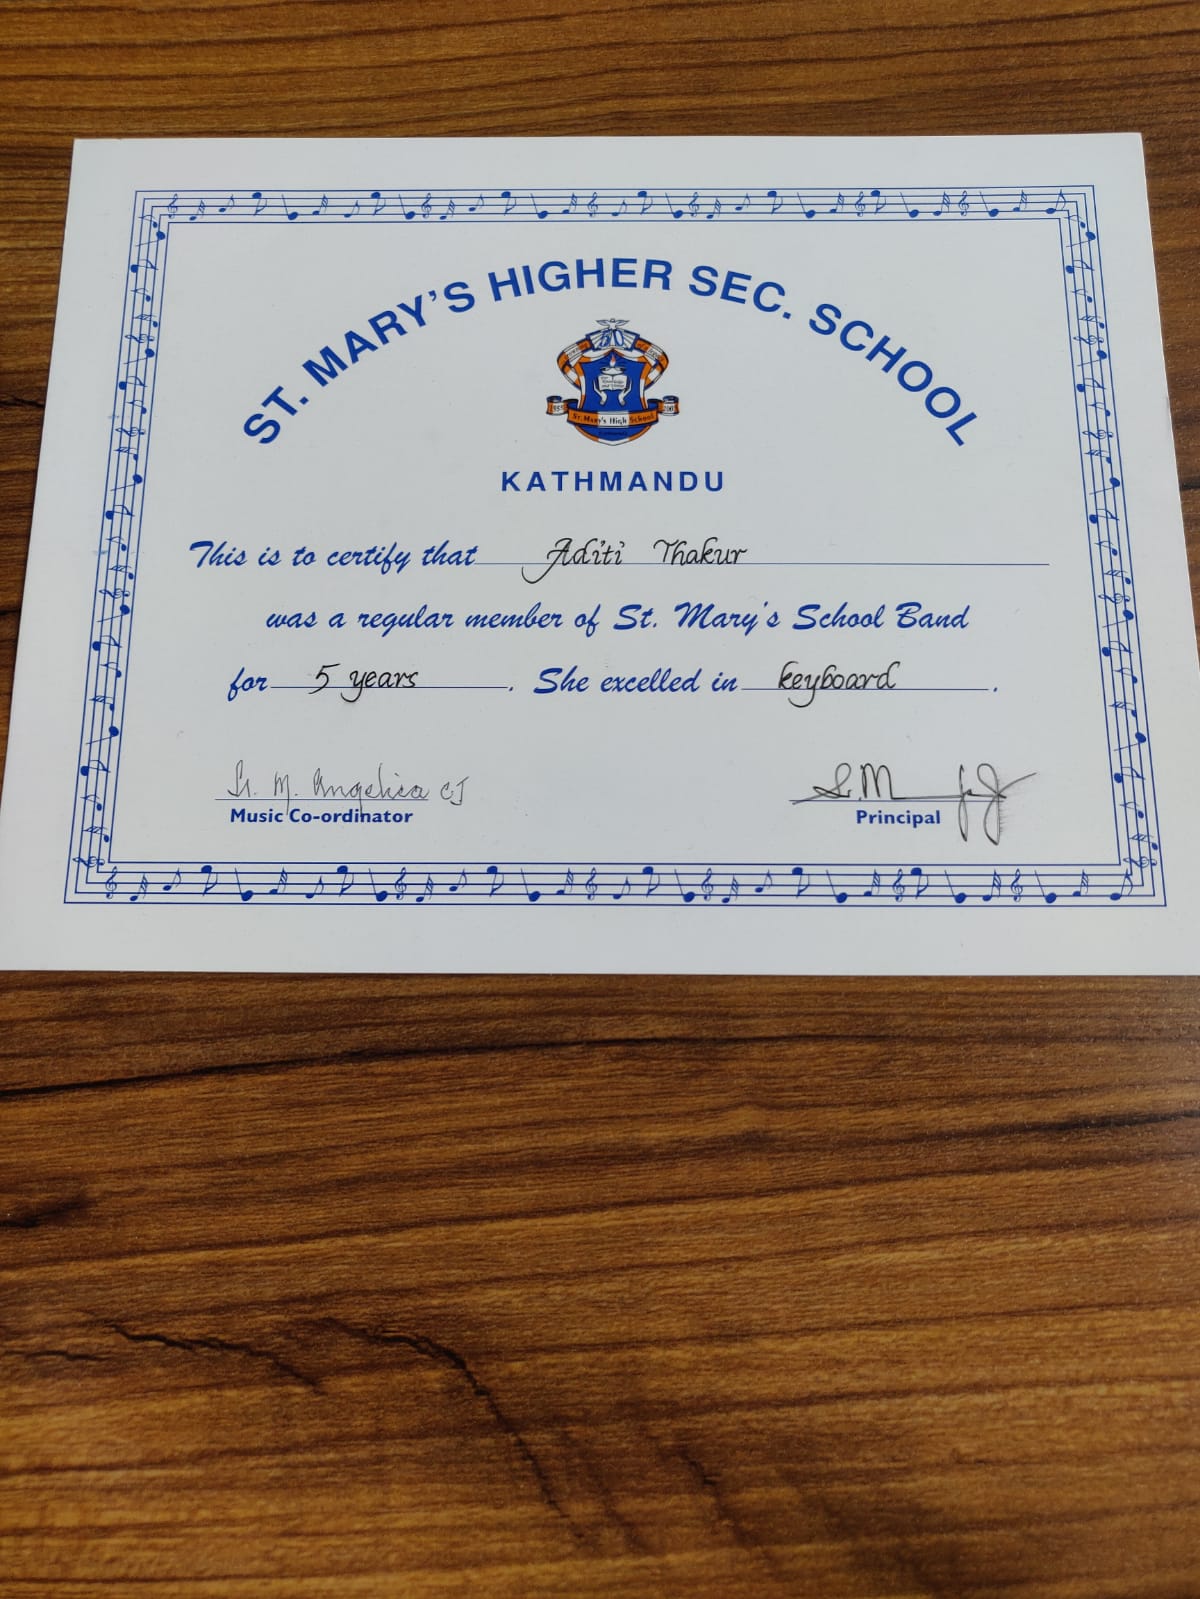 ST. MARY'S HIGHER SEC. SCHOOL
50
St. Mary's High School
KATHMANDU
This is to certify that Aditi Thakur
was a regular member of St. Mary's School Band
for 5 years. She excelled in keyboard.
Sr. M. Angelica CJ
Music Co-ordinator
Sr. M
Principal